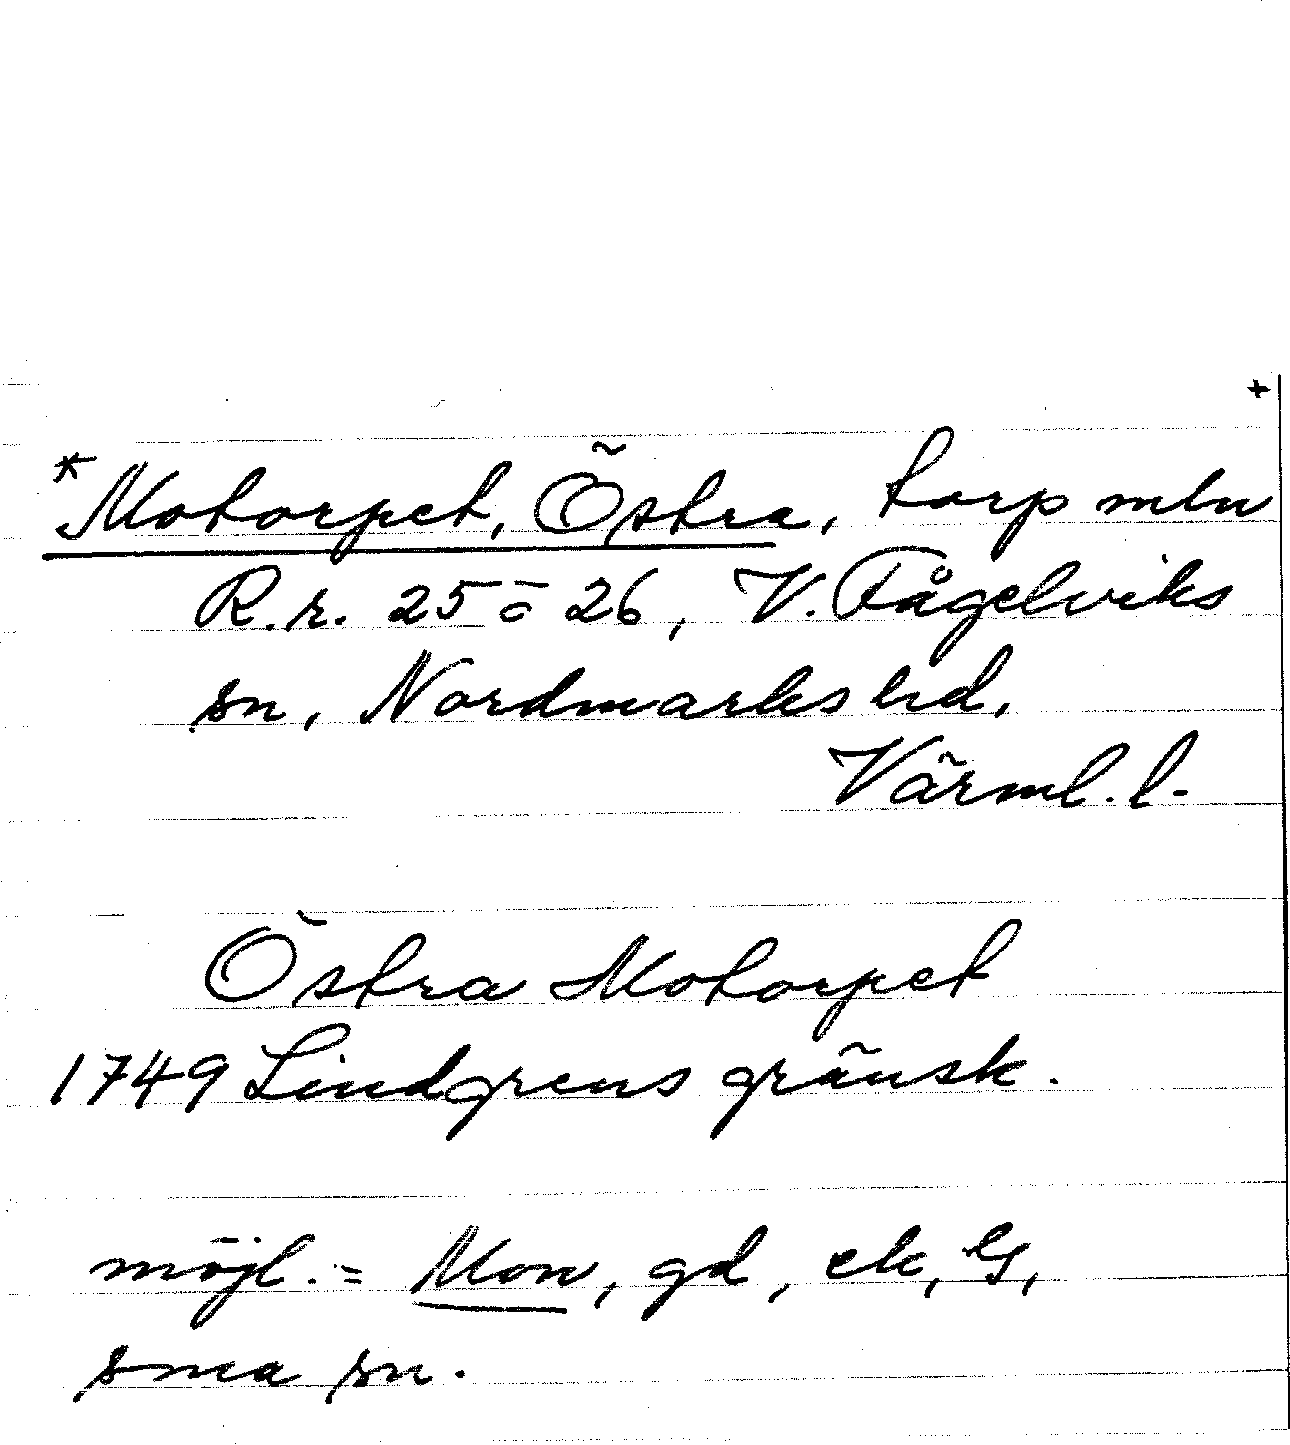 +
*Motorpet, Östra, torp mln
R.r. 25 o 26, V. Fågelviks
sn, Nordmarks hd,
Värml. l.
Östra Motorpet
1749 Lindgrens gränsk.
möjl. = Mon, gd, ek, G,
sma sn.